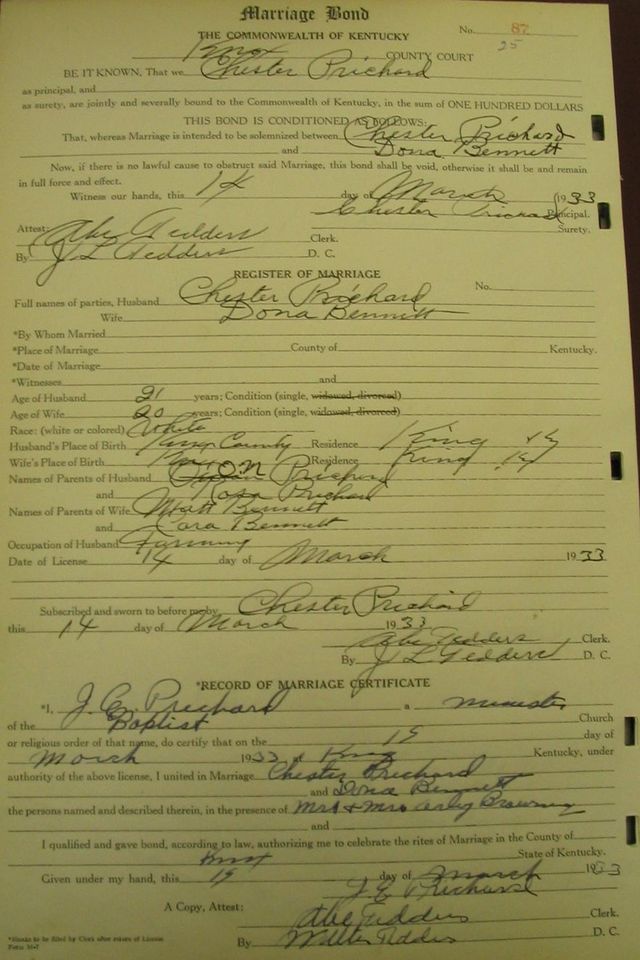 Marriage Bond
THE COMMONWEALTH OF KENTUCKY
No. 87
25
Knox COUNTY COURT
BE IT KNOWN, That we Chester Prichard
as principal, and
as surety, are jointly and severally bound to the Commonwealth of Kentucky, in the sum of ONE HUNDRED DOLLARS
THIS BOND IS CONDITIONED AS FOLLOWS:
That, whereas Marriage is intended to be solemnized between Chester Prichard
and Dona Bennett
Now, if there is no lawful cause to obstruct said Marriage, this bond shall be void, otherwise it shall be and remain
in full force and effect.
Witness our hands, this 14 day of March 1933
Chester Prichard Principal.
Surety.
Attest:
Abe Tedders Clerk.
By J L Tedders D. C.
REGISTER OF MARRIAGE
No.
Full names of parties, Husband Chester Prichard
Wife Dona Bennett
*By Whom Married
*Place of Marriage County of Kentucky.
*Date of Marriage
*Witnesses and
Age of Husband 21 years; Condition (single, widowed, divorced)
Age of Wife 20 years; Condition (single, widowed, divorced)
Race: (white or colored) White
Husband's Place of Birth Knox County Residence King Ky
Wife's Place of Birth Knox Residence King Ky
Names of Parents of Husband Prichard
and Rosa Prichard
Names of Parents of Wife Matt Bennett
and Cora Bennett
Occupation of Husband Farming
Date of License 14 day of March 1933
Subscribed and sworn to before me by Chester Prichard
this 14 day of March 1933
Abe Tedders Clerk.
By J L Tedders D. C.
*RECORD OF MARRIAGE CERTIFICATE
*I, J. E. Prichard a minister
of the Baptist Church
or religious order of that name, do certify that on the 15 day of
March 1933 at King Kentucky, under
authority of the above license, I united in Marriage Chester Prichard
and Dona Bennett
the persons named and described therein, in the presence of Mr & Mrs Browning
and
I qualified and gave bond, according to law, authorizing me to celebrate the rites of Marriage in the County of
Knox State of Kentucky.
Given under my hand, this 15 day of March 1933
J E Prichard
A Copy, Attest: Abe Tedders Clerk.
By Walter Tedders D. C.
*Blanks to be filled by Clerk after return of License
Form M-1